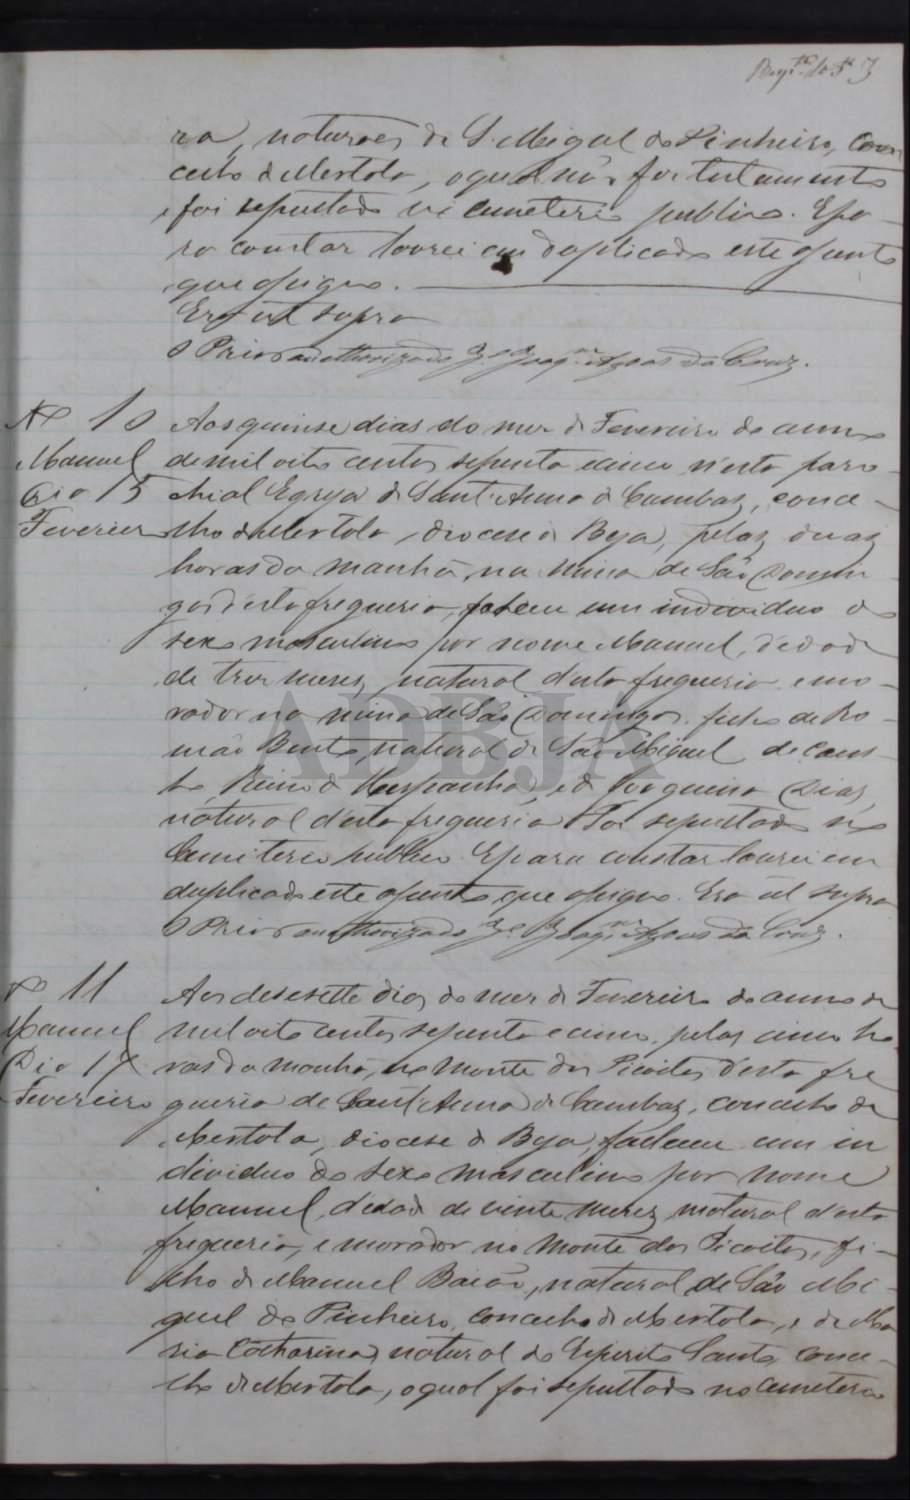 ra, naturaes de S. Miguel do Pinheiro, con
celho de Mertola, o qual não fez testamento
e foi sepultado no cemeterio publico. E pa-
ra constar lavrei em duplicado este assento
que assigno.
Era ut supra
O Prior authorizado Je Joaqm da Cruz.
No 10
Manuel
Dia 15
Fevereiro
Aos quinse dias do mez de Fevereiro do anno
de mil oito centos septenta e cinco n'esta paro
chial Egreja de Sant'Anna de Cambas, conce-
lho de Mertola, diocese de Beja, pelas duas
horas da manhã, na mina de São Domin
gos d'esta freguesia, faleceu um individuo do
sexo masculino por nome Manuel, d'edade
de tres mezes, natural d'esta freguesia e mo-
rador na mina de São Domingos, filho de Ro-
mão Bento, natural de São Miguel de
Reino de Hespanha, e de Joaquina Dias,
natural d'esta freguesia. Foi sepultado no
Cemiterio publico. E para constar lavrei em
duplicado este assento que assigno. Era ut supra
O Prior authorizado Je Joaqm da Cruz.
No 11
Manuel
Dia 17
Fevereiro
Aos desesette dias do mez de Fevereiro do anno de
mil oito centos septenta e cinco, pelas cinco ho
ras da manhã, no monte dos Picoitos d'esta fre
guesia de Sant'Anna de Cambas, concelho de
Mertola, diocese de Beja, faleceu um in
dividuo do sexo masculino por nome
Manuel, d'edade de vinte mezes, natural d'esta
freguesia, e morador no monte dos Picoitos, fi-
lho de Manuel Baião, natural de São Mi-
guel do Pinheiro, concelho de Mertola, e de Ma
ria Catharina, natural do Espirito Santo, conce-
lho de Mertola, o qual foi sepultado no Cemeterio
ADBJA